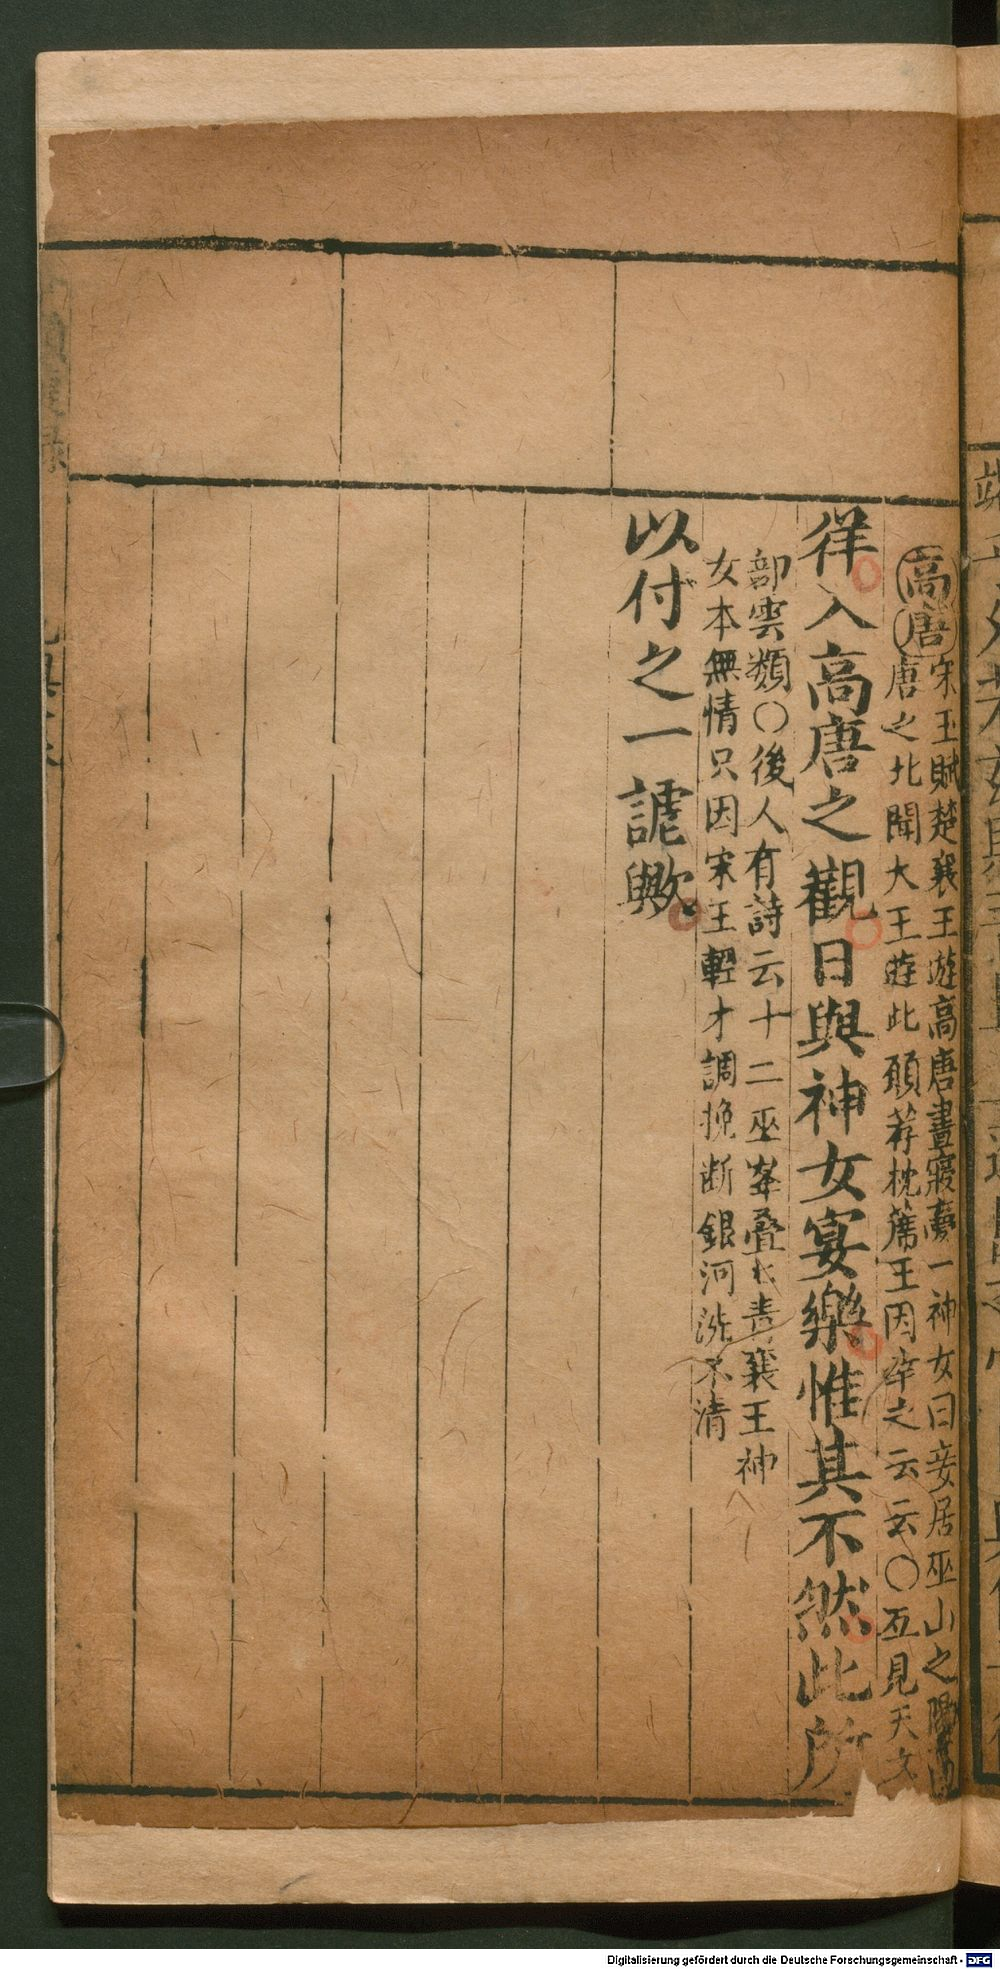 高唐宋玉賦楚襄王遊高唐晝寢夢一神女曰妾居巫山之陽高
唐之北聞大王遊此願荐枕蓆王因幸之云云〇互見天文
徉入高唐之觀日與神女宴樂惟其不然此所
部雲類〇後人有詩云十二巫峯叠七青襄王神
女本無情只因宋玉輕才調挽断銀河洗不清
以付之一謔歟
Digitalisierung gefördert durch die Deutsche Forschungsgemeinschaft - DFG